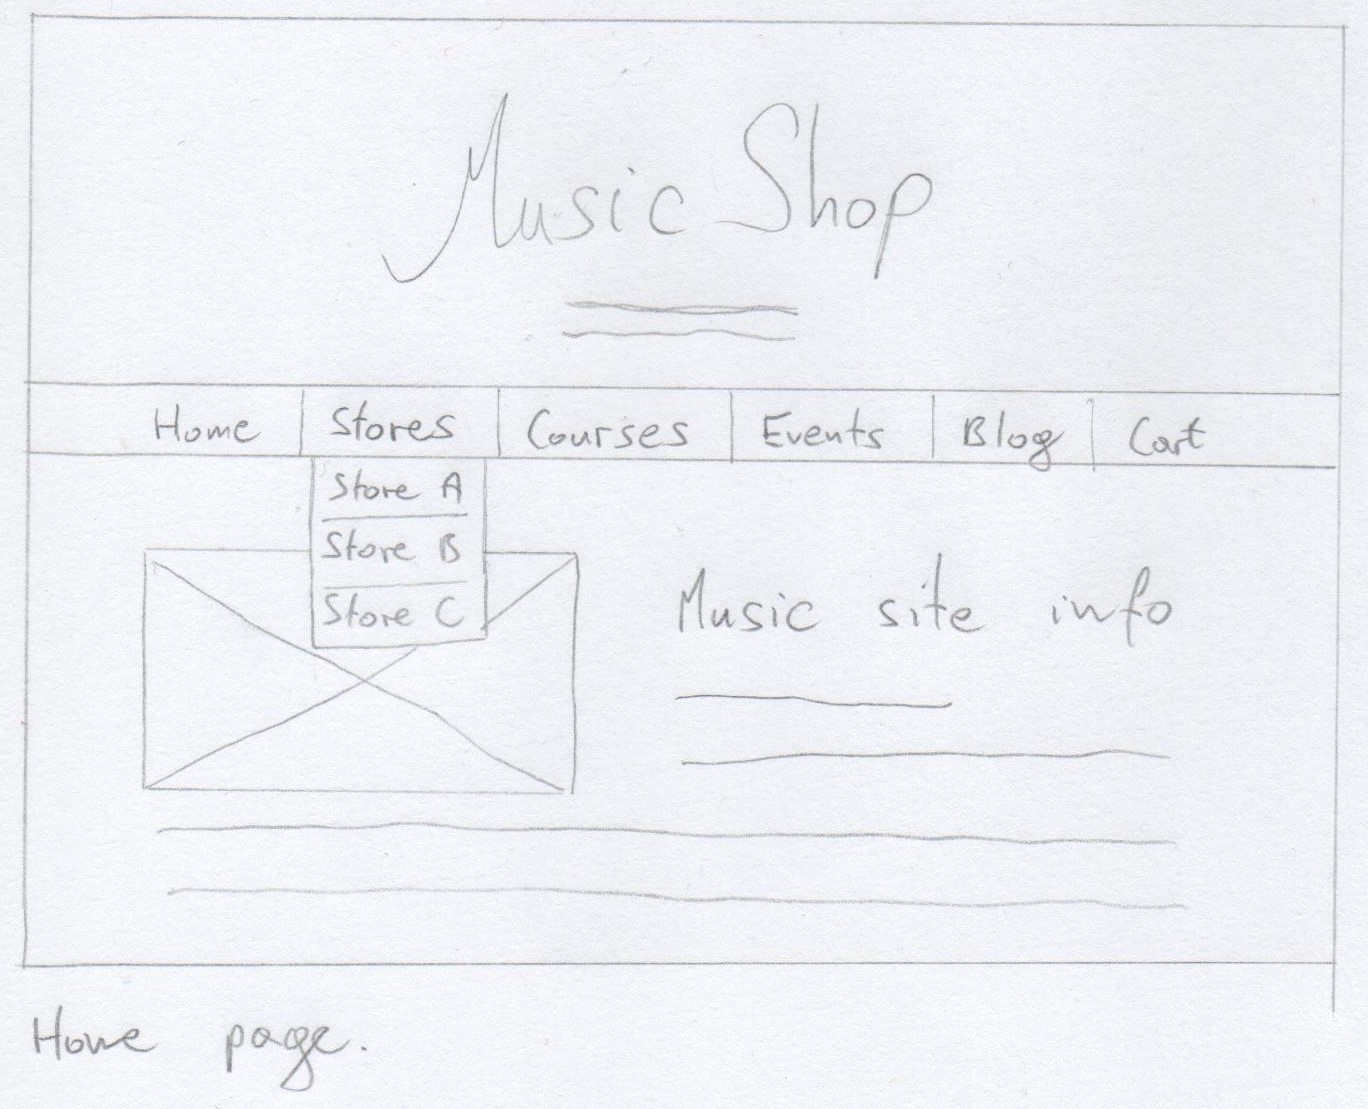 Music Shop
Home Stores Courses Events Blog Cart
Store A
Store B
Store C
Music site info
Home page.